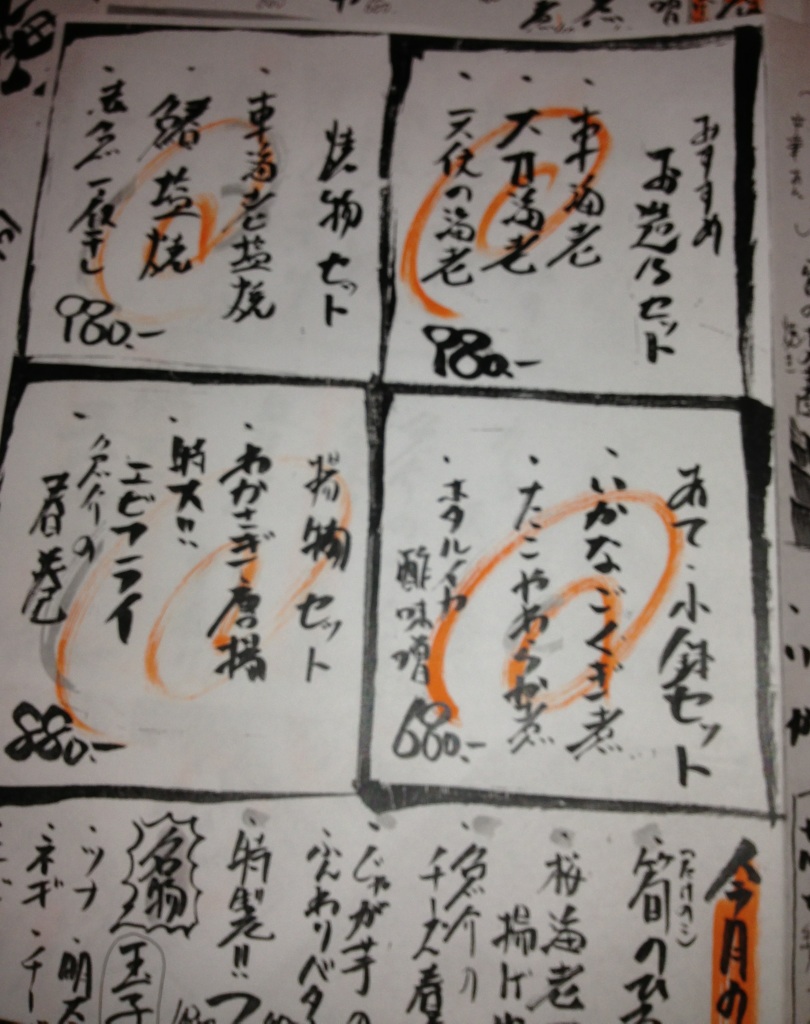 おすすめ
お造りセット
・車海老
・大刀海老
・天使の海老
980.-
焼物セット
・車海老塩焼
・鰆塩焼
一夜干し
980.-
あて・小鉢セット
・いかなごくぎ煮
・たこやわらか煮
・ホタルイカ
酢味噌
680.-
揚物セット
・わかさぎ唐揚
・特大!!
エビフライ
・魚介の
春巻
880.-
今月の
(たけのこ)
・筍のひ
・桜海老
揚げ
・魚介の
チーズ春
・じゃが芋の
ふんわりバタ
・特製!!
名物
玉子
・ツナ
・ネギ